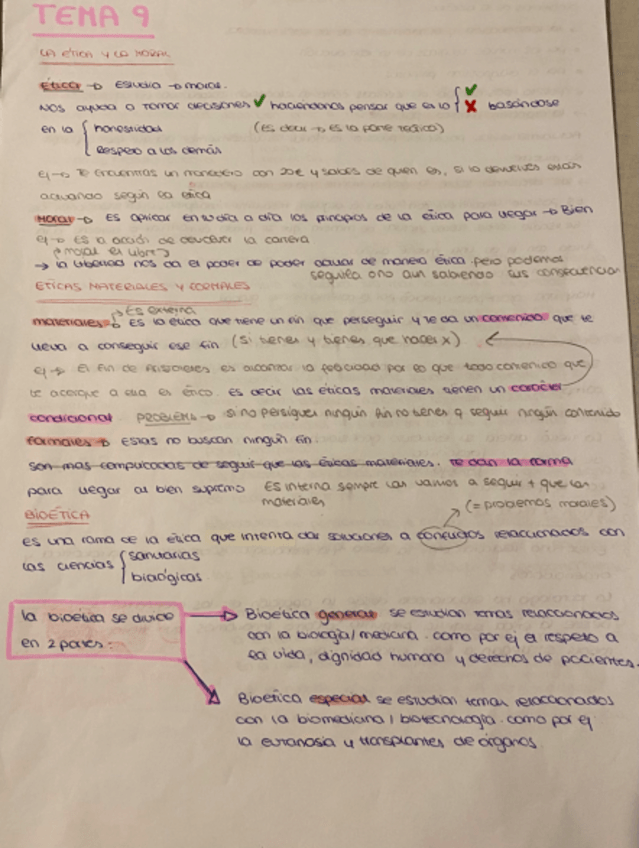 TEMA 9
LA ÉTICA Y LA MORAL
Ética → Estudia → moral.
Nos ayuda a tomar decisiones ✓ haciendonos pensar que es lo { ✓ ✗ basándose
en la { honestidad (Es decir → Es la parte teórica)
Respeto a los demás
Ej → Te encuentras un monedero con 20€ y sabes de quien es, si lo devuelves estás
actuando según la ética
Moral → Es aplicar en tu día a día los principios de la ética para llegar → Bien
ej → Es la acción de devolver la cartera
(moral es libre)
→ la libertad nos da el poder de poder actuar de manera ética pero podemos
seguirla o no aun sabiendo sus consecuencias
ÉTICAS MATERIALES Y FORMALES
→ Es externa
materiales → Es la ética que tiene un fin que perseguir y te da un contenido que te
lleva a conseguir ese fin (si tienes y tienes que hacer x)
ej → El fin de Aristóteles es alcanzar la felicidad por lo que todo contenido que
te acerque a ella es ético. es decir las éticas materiales tienen un carácter
condicional PROBLEMA → si no persigues ningún fin no tienes q seguir ningún contenido
formales → Estas no buscan ningún fin.
son mas complicadas de seguir que las éticas materiales. te dan la forma
para llegar al bien supremo Es interna siempre las vamos a seguir + que las
materiales
(= problemas morales)
BIOÉTICA
es una rama de la ética que intenta dar soluciones a conflictos relaccionados con
las ciencias { sanitarias
biológicas
la bioética se divide → Bioética general se estudian temas relaccionados
en 2 partes: con la biología/medicina. como por ej el respeto a
la vida, dignidad humana y derechos de pacientes.
Bioética especial se estudian temas relaccionados
con la biomedicina / biotecnología. como por ej
la eutanasia y transplantes de órganos